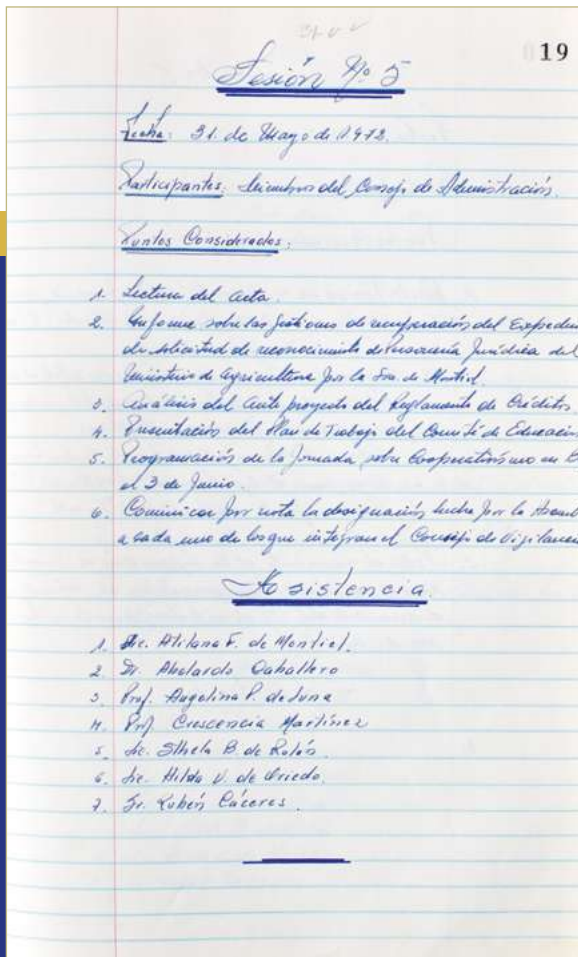 31-V-V
19
Sesión Nº 5
Fecha: 31. de Mayo de 1973.
Participantes: Miembros del Consejo de Administración.
Puntos Considerados:
1. Lectura del acta.
2. Informe sobre las gestiones de recuperación del Expedien
de solicitud de reconocimiento de Personería Jurídica del
Ministerio de Agricultura por la Sra. de Montiel.
3. Análisis del Ante proyecto del Reglamento de Créditos
4. Presentación del Plan de Trabajo del Comité de Educación
5. Programación de la Jornada sobre Cooperativismo en B
el 3 de Junio.
6. Comunicar por nota la designación hecha por la Asamb
a cada uno de los que integran el Consejo de Vigilanci
Asistencia
1. Lic. Atilana F. de Montiel.
2. Dr. Abelardo Caballero
3. Prof. Angelina P. de Luna
4. Prof. Crescencia Martínez
5. Lic. Sthela B. de Rolós.
6. Lic. Hilda V. de Oviedo.
7. Sr. Rubén Cáceres.